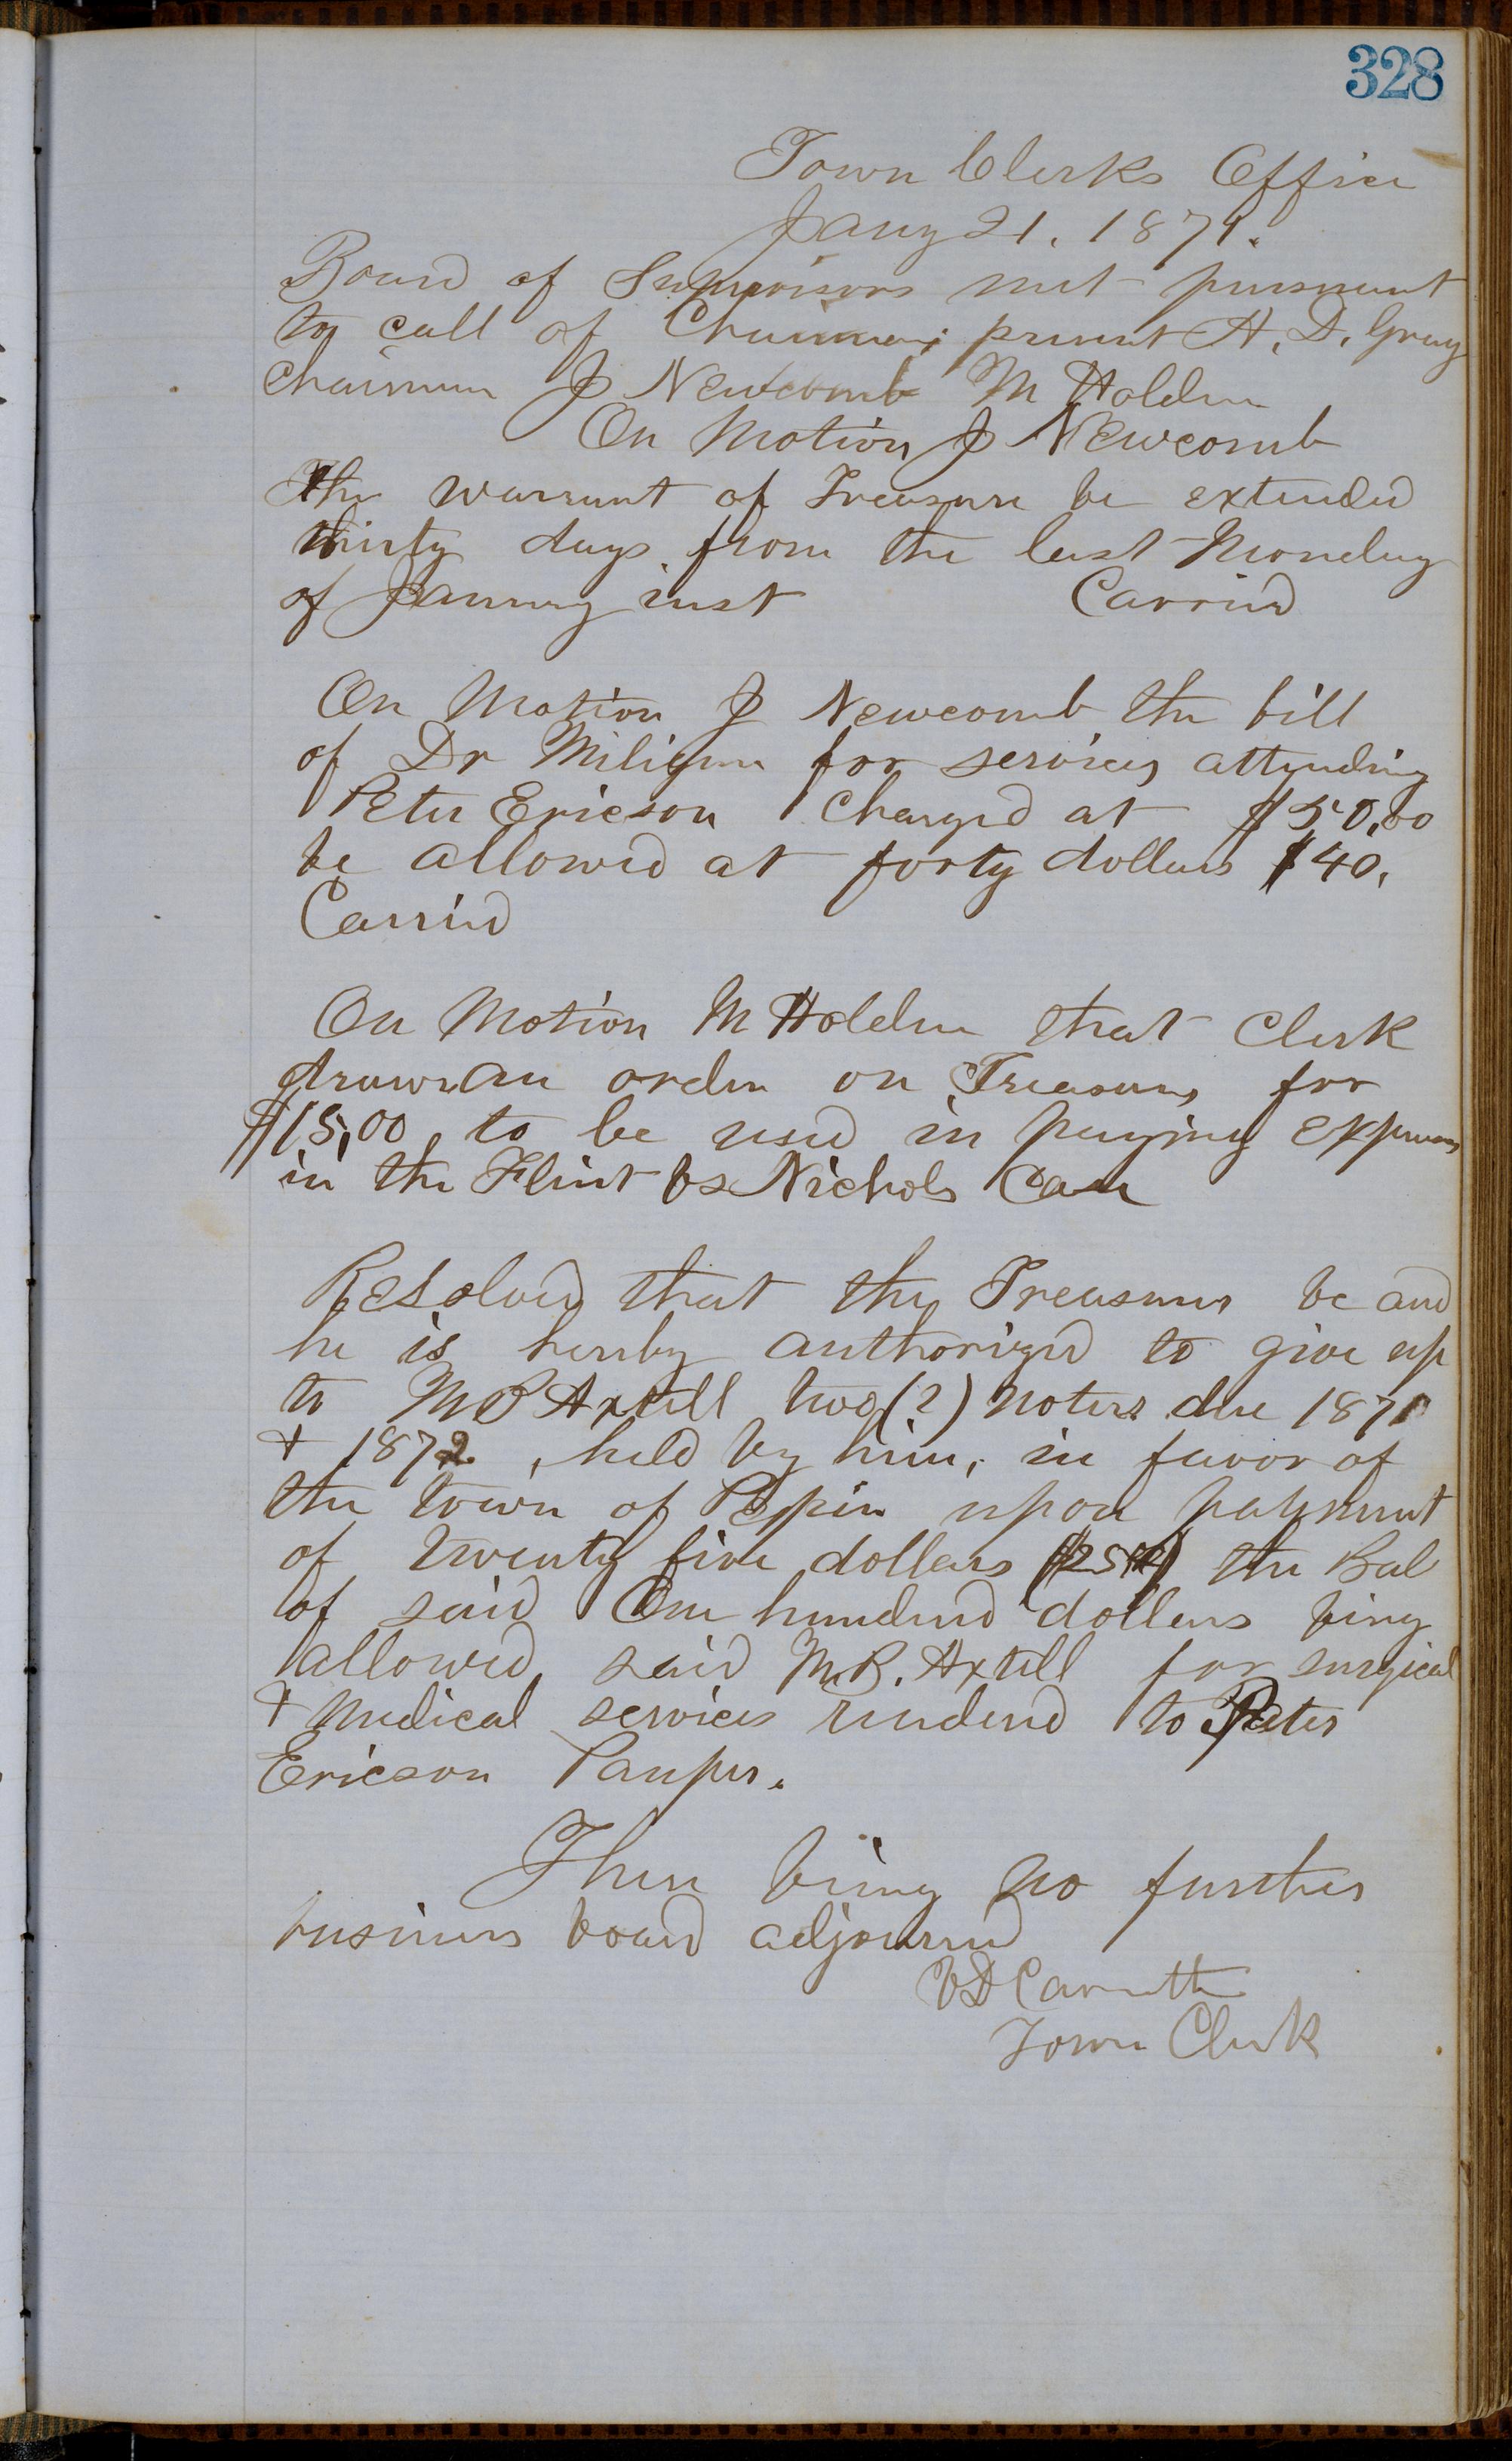 328
Town Clerks Office
Jany 21. 1871.
Board of Supervisors met pursuant
to call of Chairman; present H. D. Gray
Chairman J Newcomb M Holden
On Motion J Newcomb
The warrant of Treasure be extended
thirty days from the last Monday
of January inst Carried
On Motion J Newcomb the bill
of Dr Miligan for services attending
Peter Ericson Charged at $50.00
be allowed at forty dollars $40.
Carried
On Motion M Holden that Clerk
draw an order on Treasury for
$15.00 to be used in paying expenses
in the Flint vs Nichols Case
Resolved that the Treasurer be and
he is hereby authorized to give up
to M B Axtell two (2) notes due 1871
+ 1872, held by him, in favor of
the town of Pepin upon payment
of twenty five dollars the Bal
of said One hundred dollars being
allowed said M. B. Axtell for surgical
+ Medical services rendered to Peter
Ericson Pauper.
There being no further
business board adjourned
V D Carruth
Town Clerk